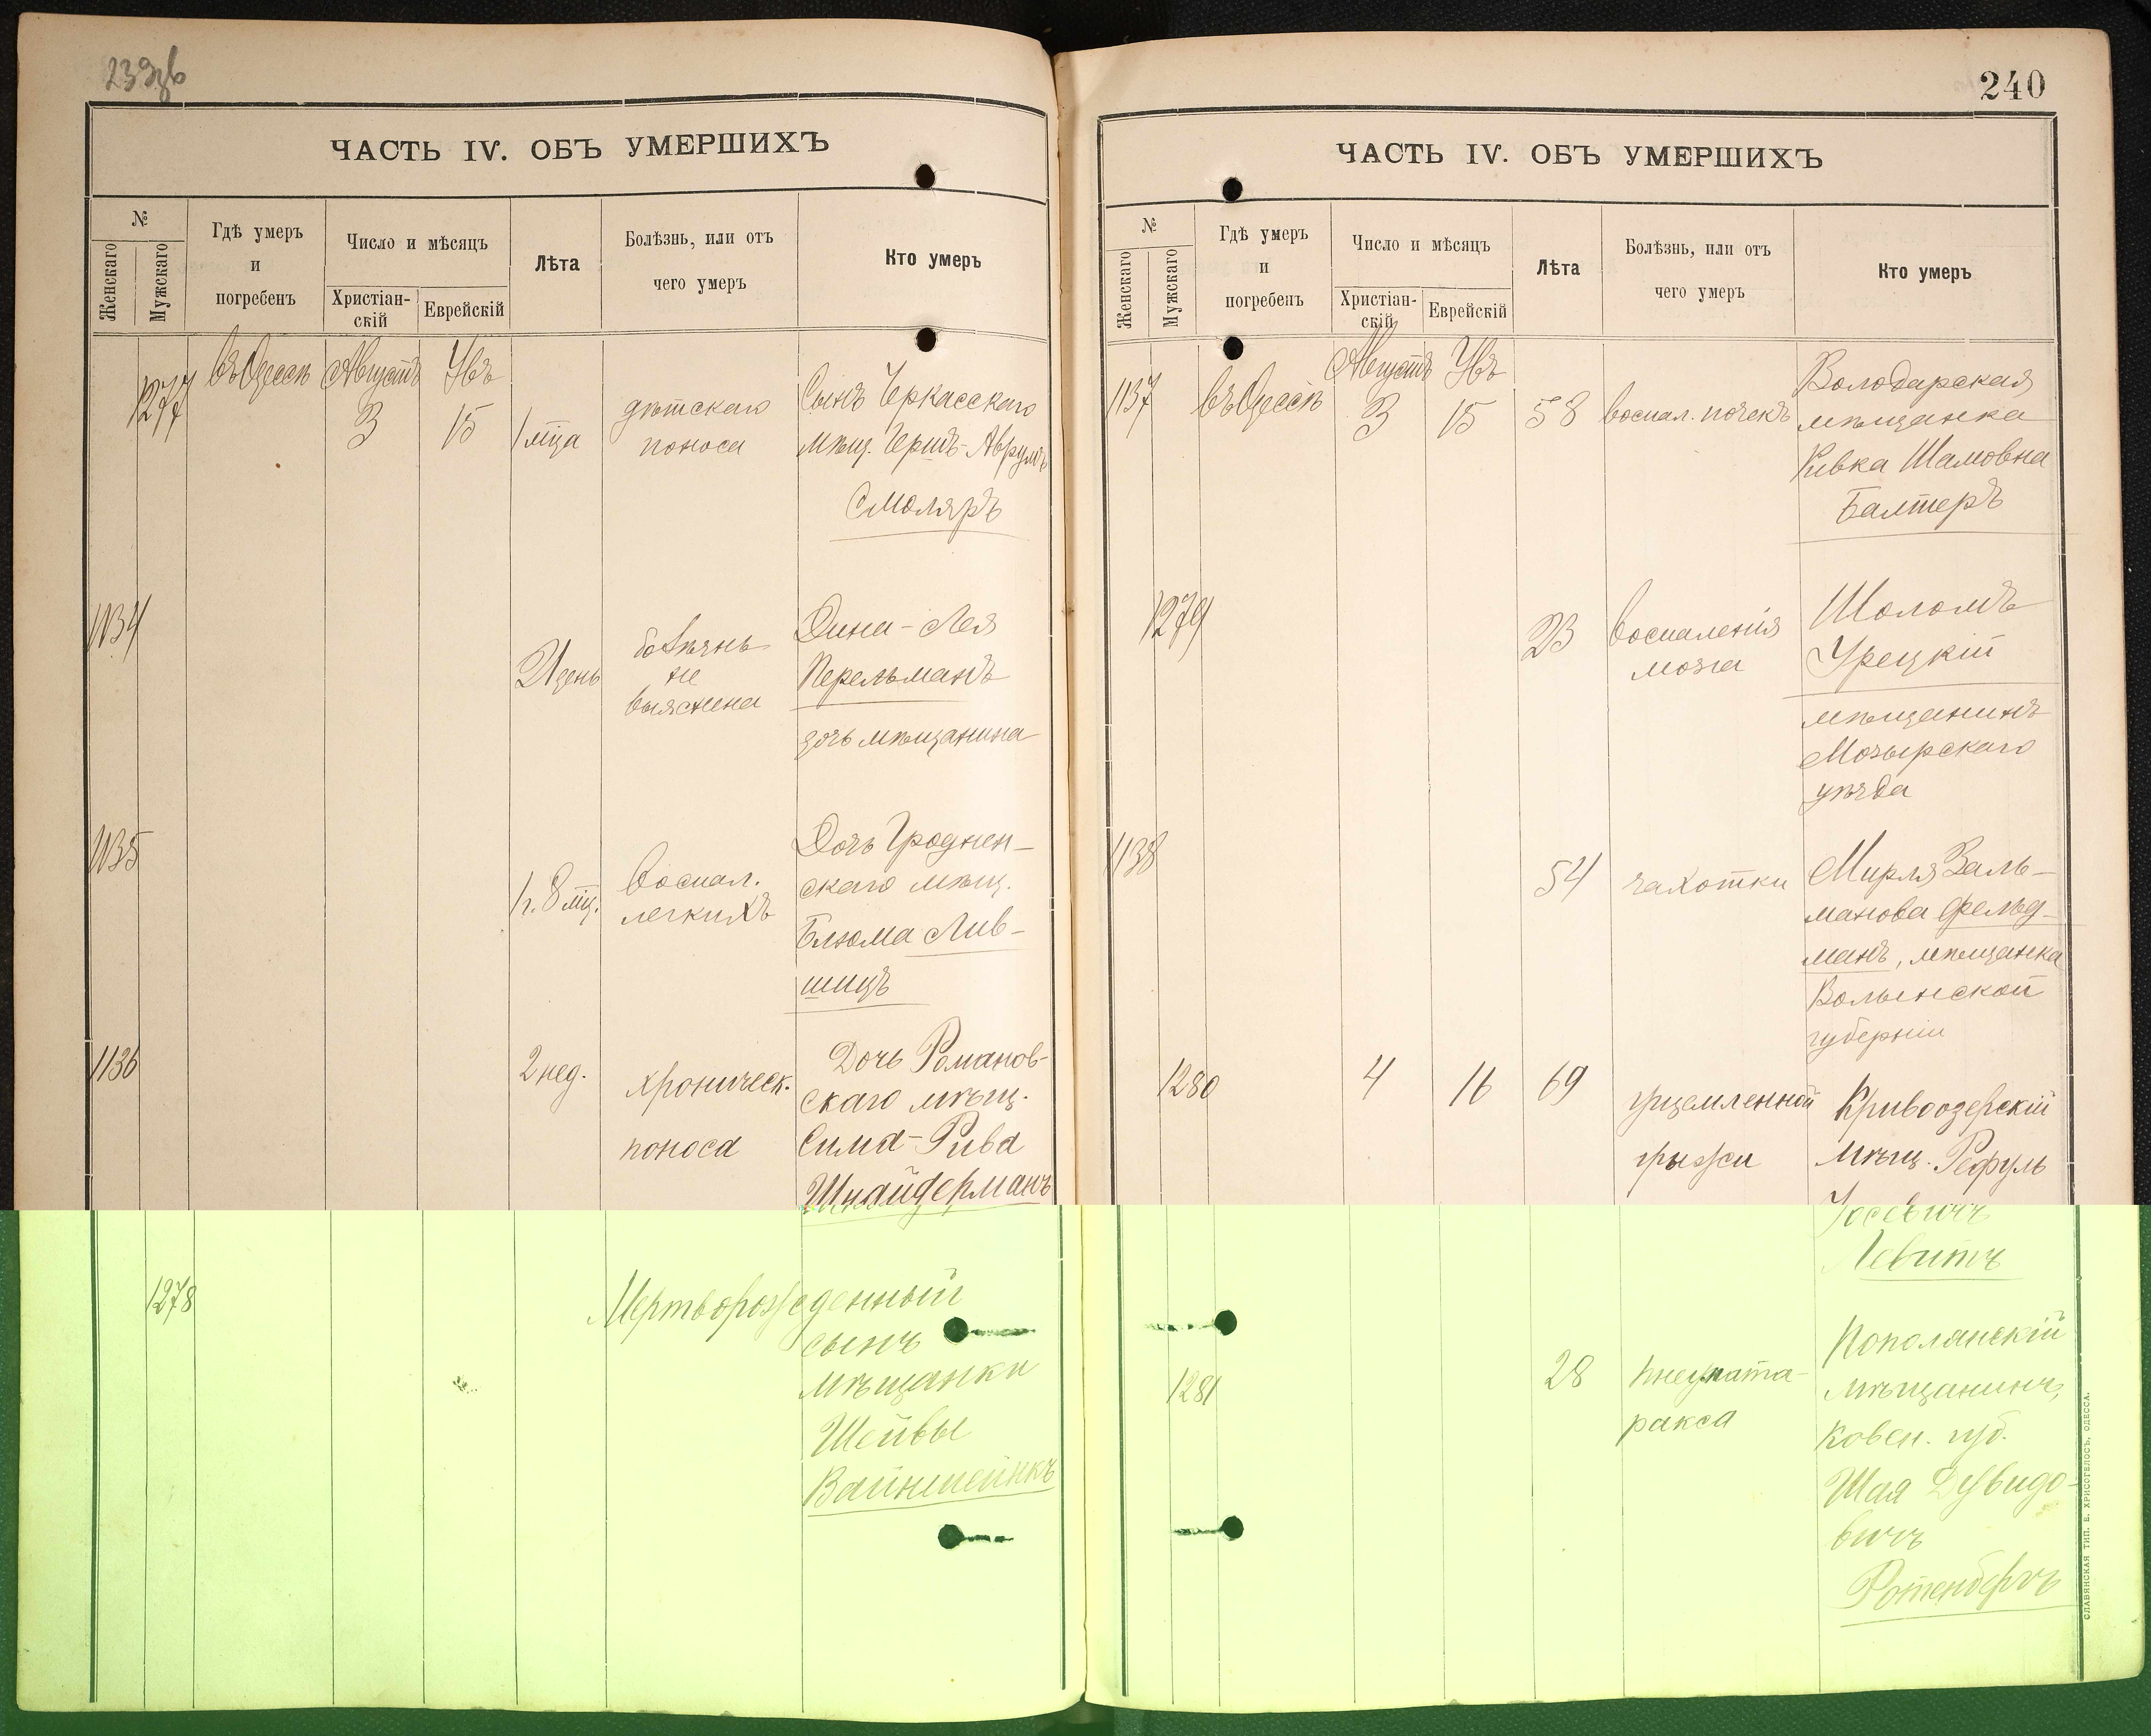 239об
ЧАСТЬ IV. ОБЪ УМЕРШИХЪ
№
Женскаго
Мужскаго
Гдѣ умеръ
и
погребенъ
Число и мѣсяцъ
Христіан-
скій
Еврейскій
Лѣта
Болѣзнь, или отъ
чего умеръ
Кто умеръ
1277
въ Одессѣ
Августъ
3
Увъ
15
1 мца
дѣтскаго
поноса
Сынъ Черкасскаго
мѣщ. Гершъ-Аврумъ
Смоляръ
1134
21 день
болѣзнь
не
выяснена
Дина-Лея
Перельманъ
дочь мѣщанина
1135
1 г. 8 мц.
воспал.
легкихъ
Дочь Гроднен-
скаго мѣщ.
Блюма Лив-
шицъ
1136
2 нед.
хроническ.
поноса
Дочь Романов-
скаго мѣщ.
Сима-Рива
Шнайдерманъ
1278
Мертворожденный
сынъ
мѣщанки
Шейвы
Вайншейнкъ
240
ЧАСТЬ IV. ОБЪ УМЕРШИХЪ
№
Женскаго
Мужскаго
Гдѣ умеръ
и
погребенъ
Число и мѣсяцъ
Христіан-
скій
Еврейскій
Лѣта
Болѣзнь, или отъ
чего умеръ
Кто умеръ
1137
въ Одессѣ
Августъ
3
Увъ
15
58
воспал. почекъ
Володарская
мѣщанка
Ривка Шамовна
Балтеръ
1279
23
воспаленія
мозга
Шоломъ
Урецкій
мѣщанинъ
Мозырскаго
уѣзда
1138
54
чахотки
Мирля Заль-
манова Фельд-
манъ, мѣщанка
Волынской
губерніи
1280
4
16
69
ущемленной
грыжи
Кривоозерскій
мѣщ. Рефуль
Іосевичъ
Левитъ
1281
28
пнеумата-
ракса
Пополанскій
мѣщанинъ,
Ковен. губ.
Шая Дувидо-
вичъ
Ротенбергъ
СЛАВЯНСКАЯ ТИП. Е. ХРИСОГЕЛОСЪ, ОДЕССА.